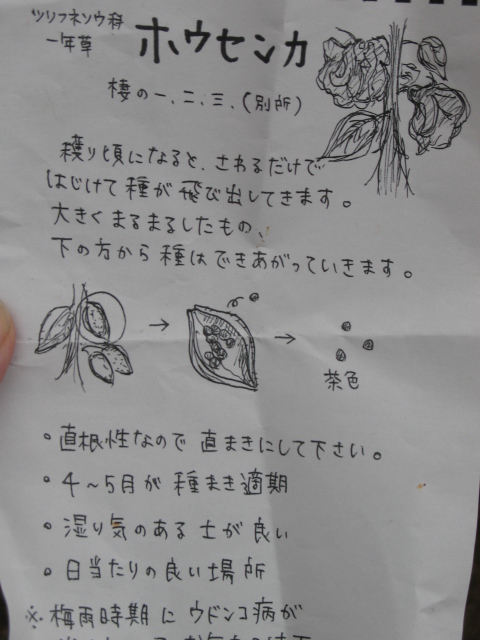 ツリフネソウ科
一年草
ホウセンカ
棲の一、二、三、(別所)
穫り頃になると、さわるだけで
はじけて種が飛び出してきます。
大きくまるまるしたもの、
下の方から種はできあがっていきます。
茶色
・直根性なので直まきにして下さい。
・4〜5月が種まき適期
・湿り気のある土が良い
・日当たりの良い場所
※梅雨時期にウドンコ病が